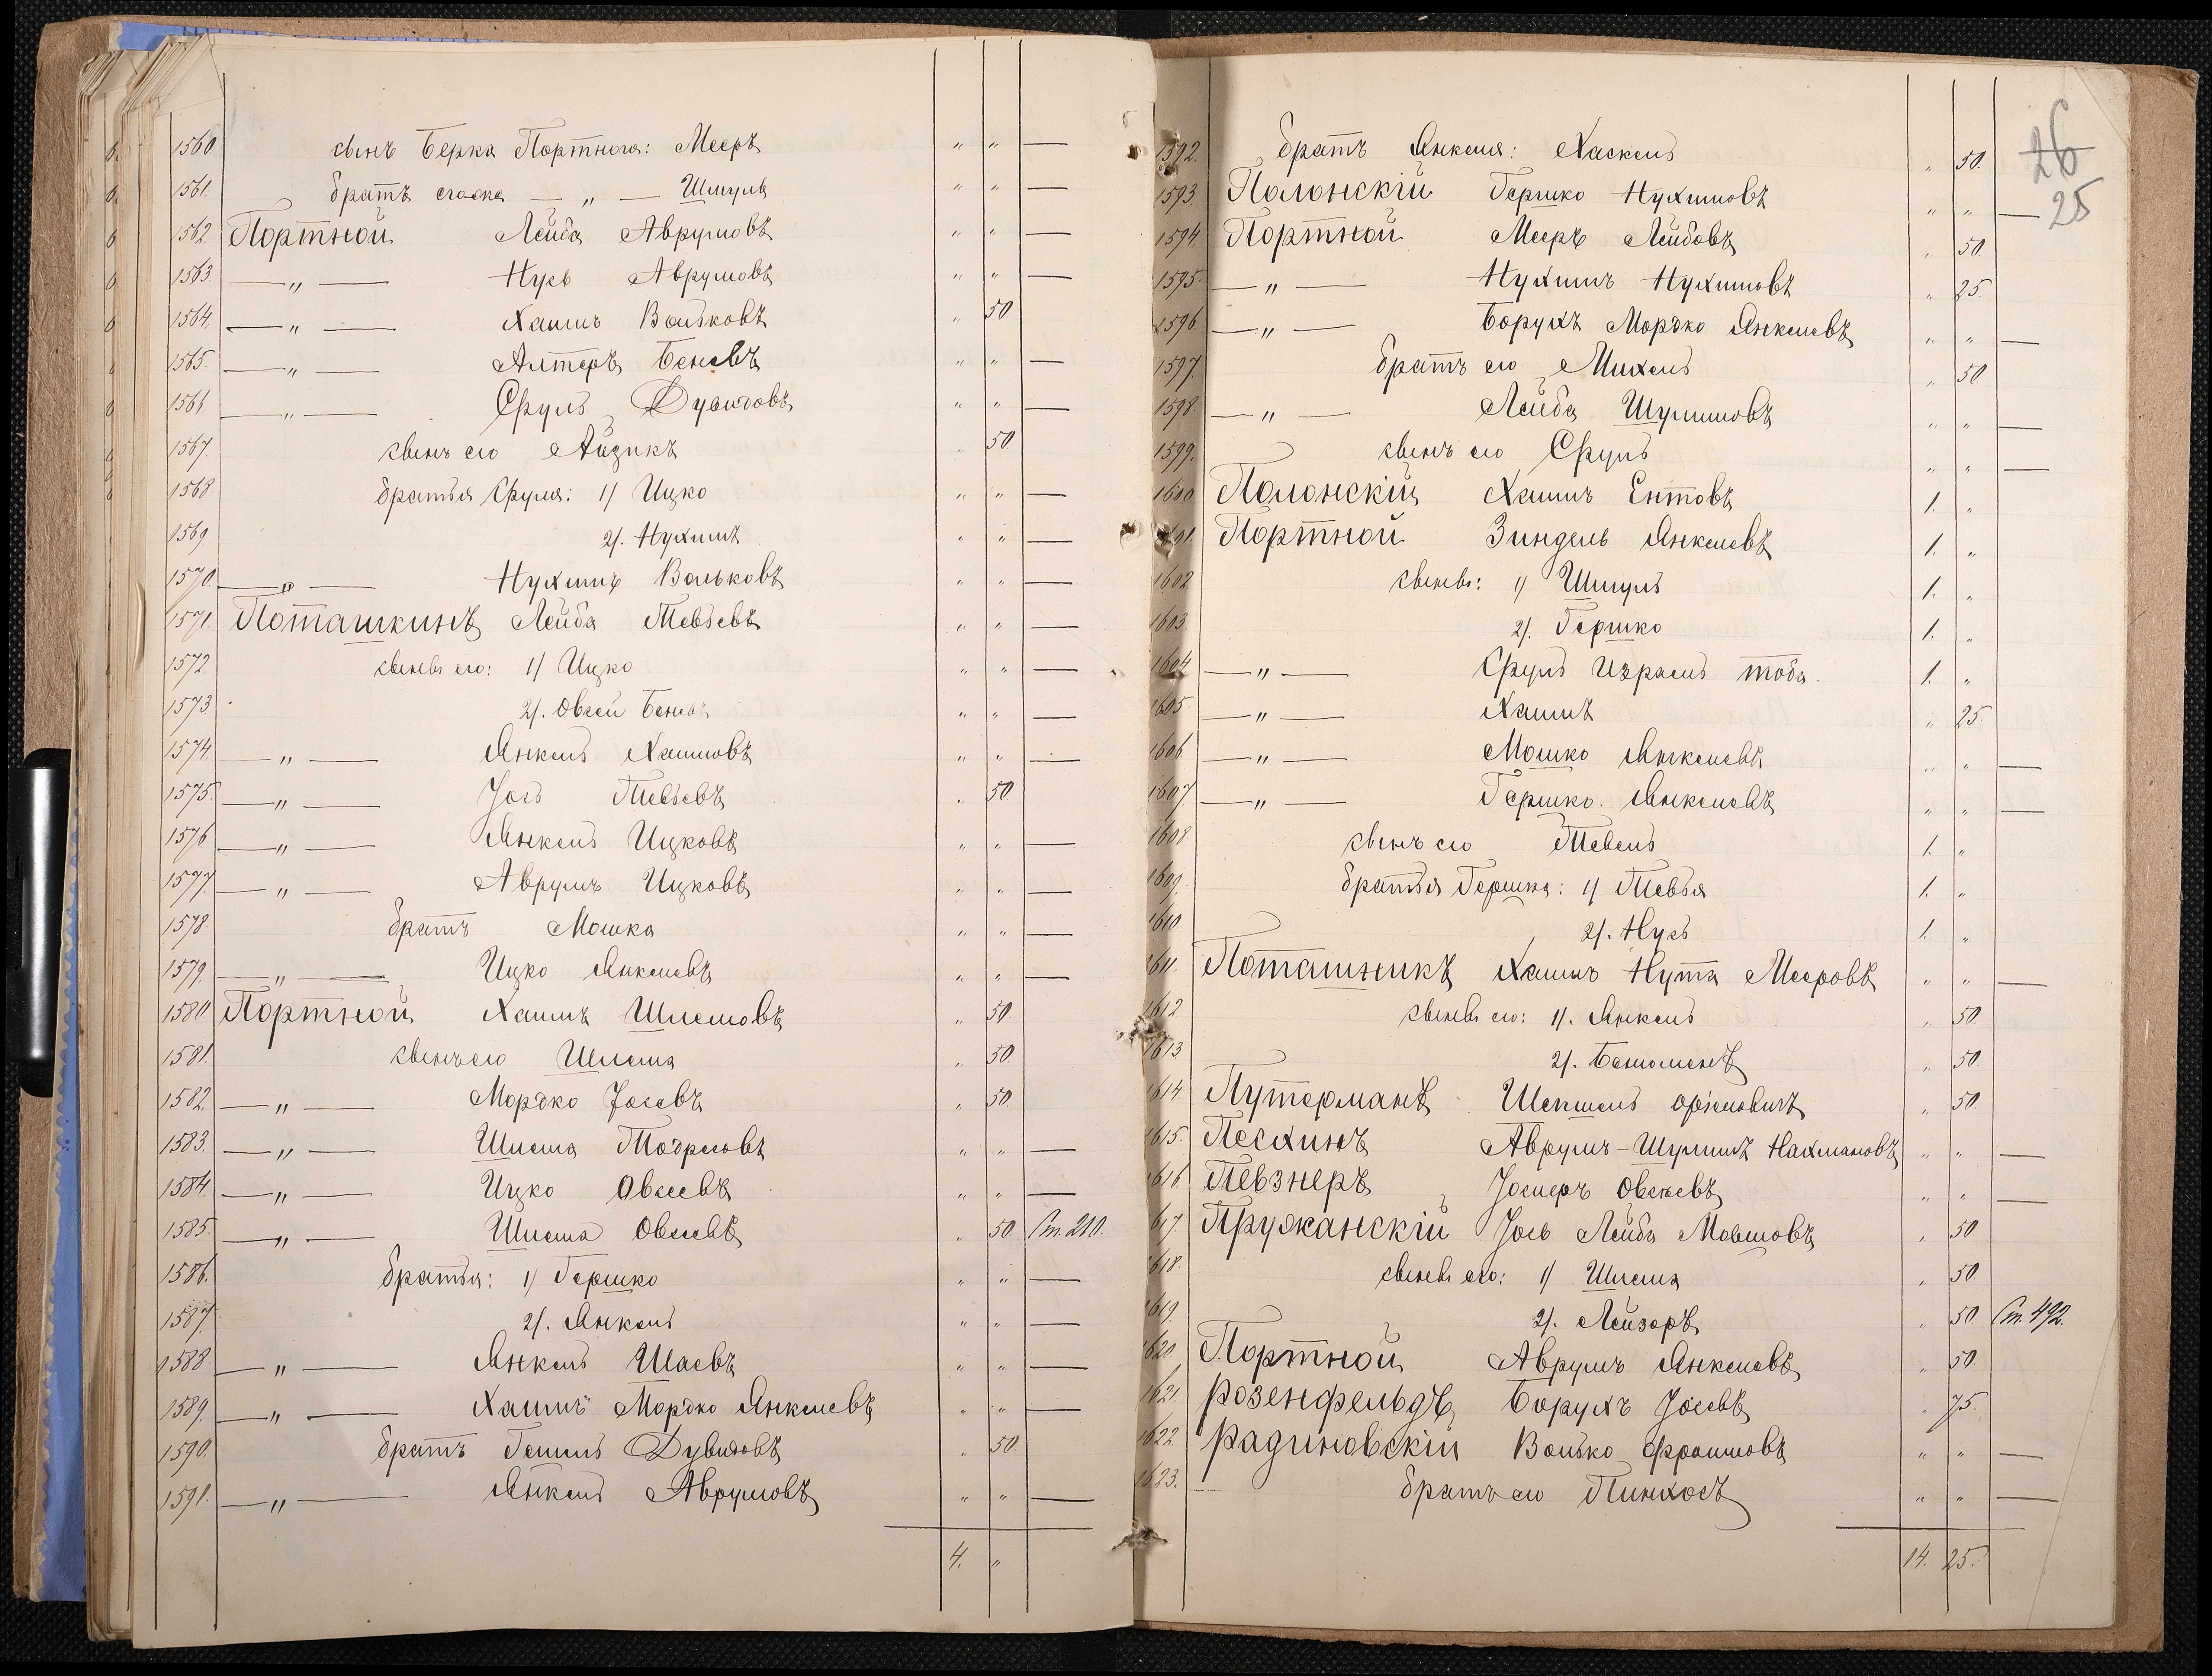 1560 сынъ Берка Портного: Мееръ " " —
1561. братъ " — Шмуль " " —
1562 Портной Лейба Аврумовъ " " —
1563. — " — Нусь Аврумовъ " " —
1564. — " — Хаимъ Вольковъ " 50
1565. — " — Алтеръ Беневъ " " —
1566. — " — Сруль " " —
1567. сынъ его Айзикъ " 50
1568 братья Сруля: 1/ Ицко " " —
1569 2/. Нухимъ " " —
1570. — " — Нухимъ Вольковъ " " —
1571 Поташкинъ Лейба Тевьевъ " " —
1572. сыновья его: 1/ Ицко " " —
1573. 2/. Овсей " " —
1574. — " — Янкель Хаимовъ " " —
1575. — " — Іось Тевьевъ " 50
1576 — " — Янкель Ицковъ " " —
1577 — " — Аврумъ Ицковъ " " —
1578. братъ Мошка " " —
1579. — " — Ицко Янкелевъ " " —
1580 Портной Хаимъ Шлемовъ " 50
1581. сынъ его Шлема " 50
1582. — " — Мордко Іосевъ " 50.
1583. — " — Шлема Тодресовъ " " —
1584. — " — Ицко Овсеевъ " " —
1585. — " — Шлема Овсеевъ " 50 Ст. 210.
1586. братья: 1/ Гершко " " —
1587. 2/. Янкель " " —
1588 — " — Янкель Шаевъ " " —
1589. — " — Хаимъ Мордко Янкелевъ " " —
1590. братъ Дувидовъ " 50
1591. — " — Янкель Аврумовъ " " —
4. "
26
25
1592. братъ Янкеля: Хаскель " 50.
1593. Полонскій Гершко Нухимовъ " " —
1594. Портной Мееръ Лейбовъ " 50.
1595. — " — Нухимъ Нухимовъ " 25.
1596. — " — Борухъ Мордко Янкелевъ " " —
1597. братъ его Михель " 50
1598. — " — Лейба Шулимовъ " " —
1599. сынъ его Сруль " " —
1600 Полонскій Хаимъ Ентовъ 1. "
1601. Портной Зиндель Янкелевъ 1. "
1602. сыновья: 1/ Шмуль 1. "
1603. 2/. Гершко 1. "
1604 — " — Сруль Израель 1. "
1605 — " — Хаимъ " 25
1606. — " — Мошко Янкелевъ " " —
1607 — " — Гершко Янкелевъ " " —
1608. сынъ его Тевель 1. "
1609. братья Гершка: 1/ Тевья 1. "
1610 2/. Нусь 1. "
1611. Поташникъ Хаимъ Нута Мееровъ " " —
1612 сыновья его: 1/. Янкель " 50.
1613 2/. " 50.
1614 Путерманъ Шепшель " 50.
1615. Песхинъ Аврумъ-Шулимъ Нахмановъ " " —
1616 Певзнеръ Овсеевъ " " —
1617 Пружанскій Іось Лейба Мовшовъ " 50
1618. сыновья его: 1/ Шлема " 50.
1619. 2/. Лейзоръ " 50 Ст. 492.
1620 Портной Аврумъ Янкелевъ " 50.
1621. Розенфельдъ Борухъ Іосевъ " 75.
1622 Радиновскій Волько Фроимовъ " " —
1623. братъ его Пинхосъ " " —
14. 25.